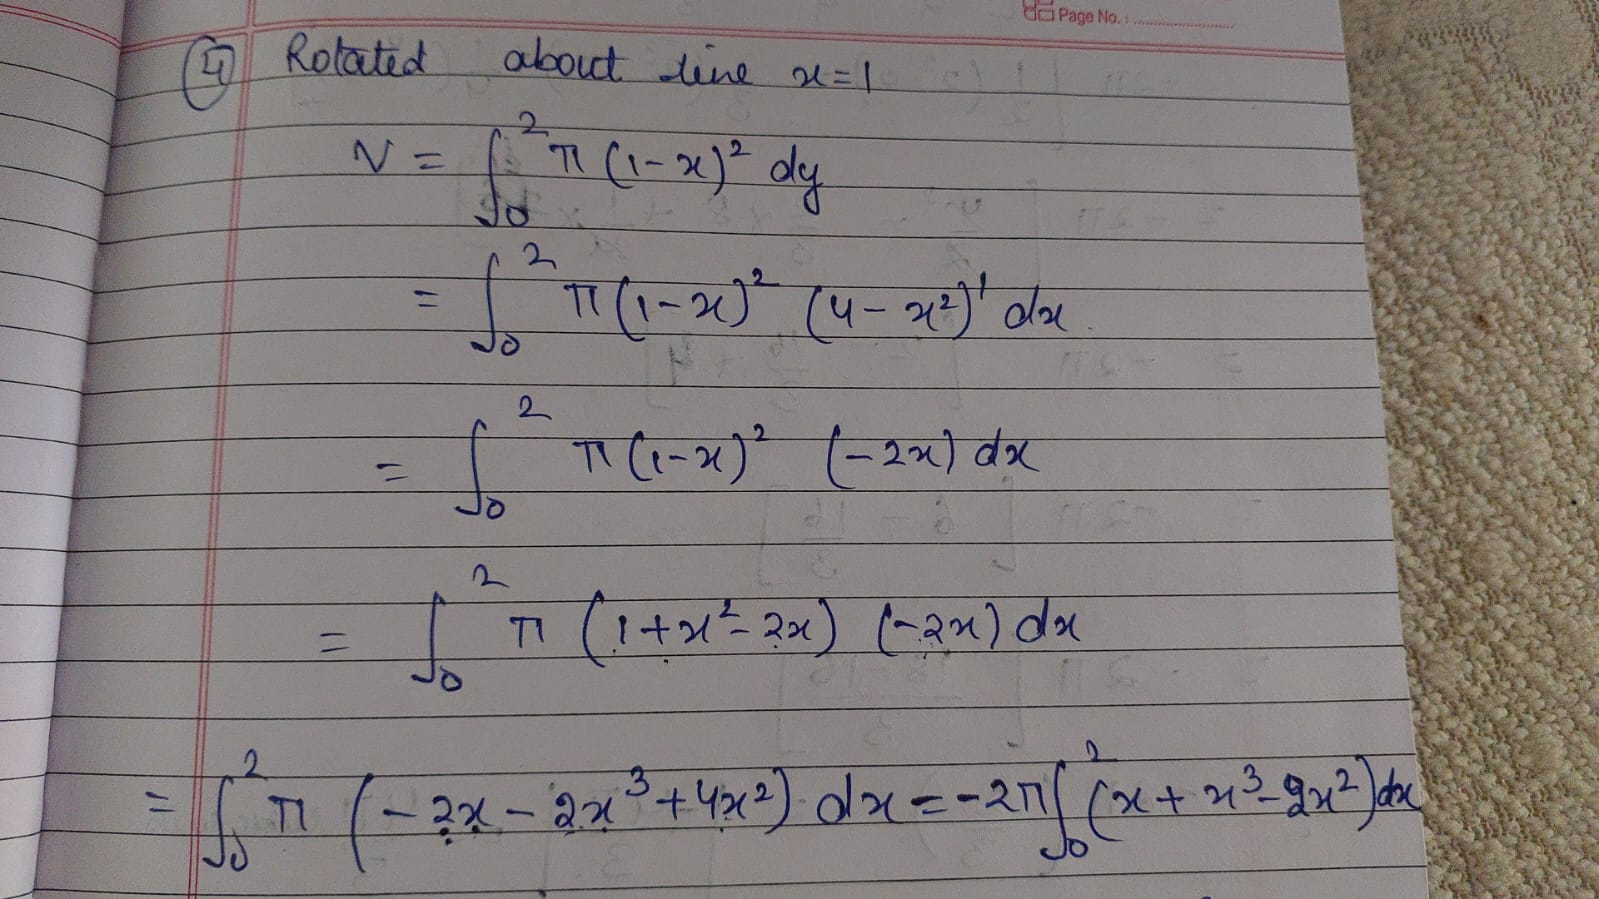 Page No. :
④ Rotated about line x=1
V = ∫₀² π (1-x)² dy
= ∫₀² π (1-x)² (4-x²)' dx
= ∫₀² π (1-x)² (-2x) dx
= ∫₀² π (1+x²-2x) (-2x) dx
= ∫₀² π (-2x-2x³+4x²) dx = -2π ∫₀² (x+x³-2x²) dx